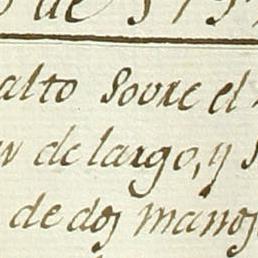 de 179
alto sobre el
de largo, y
de dos manos